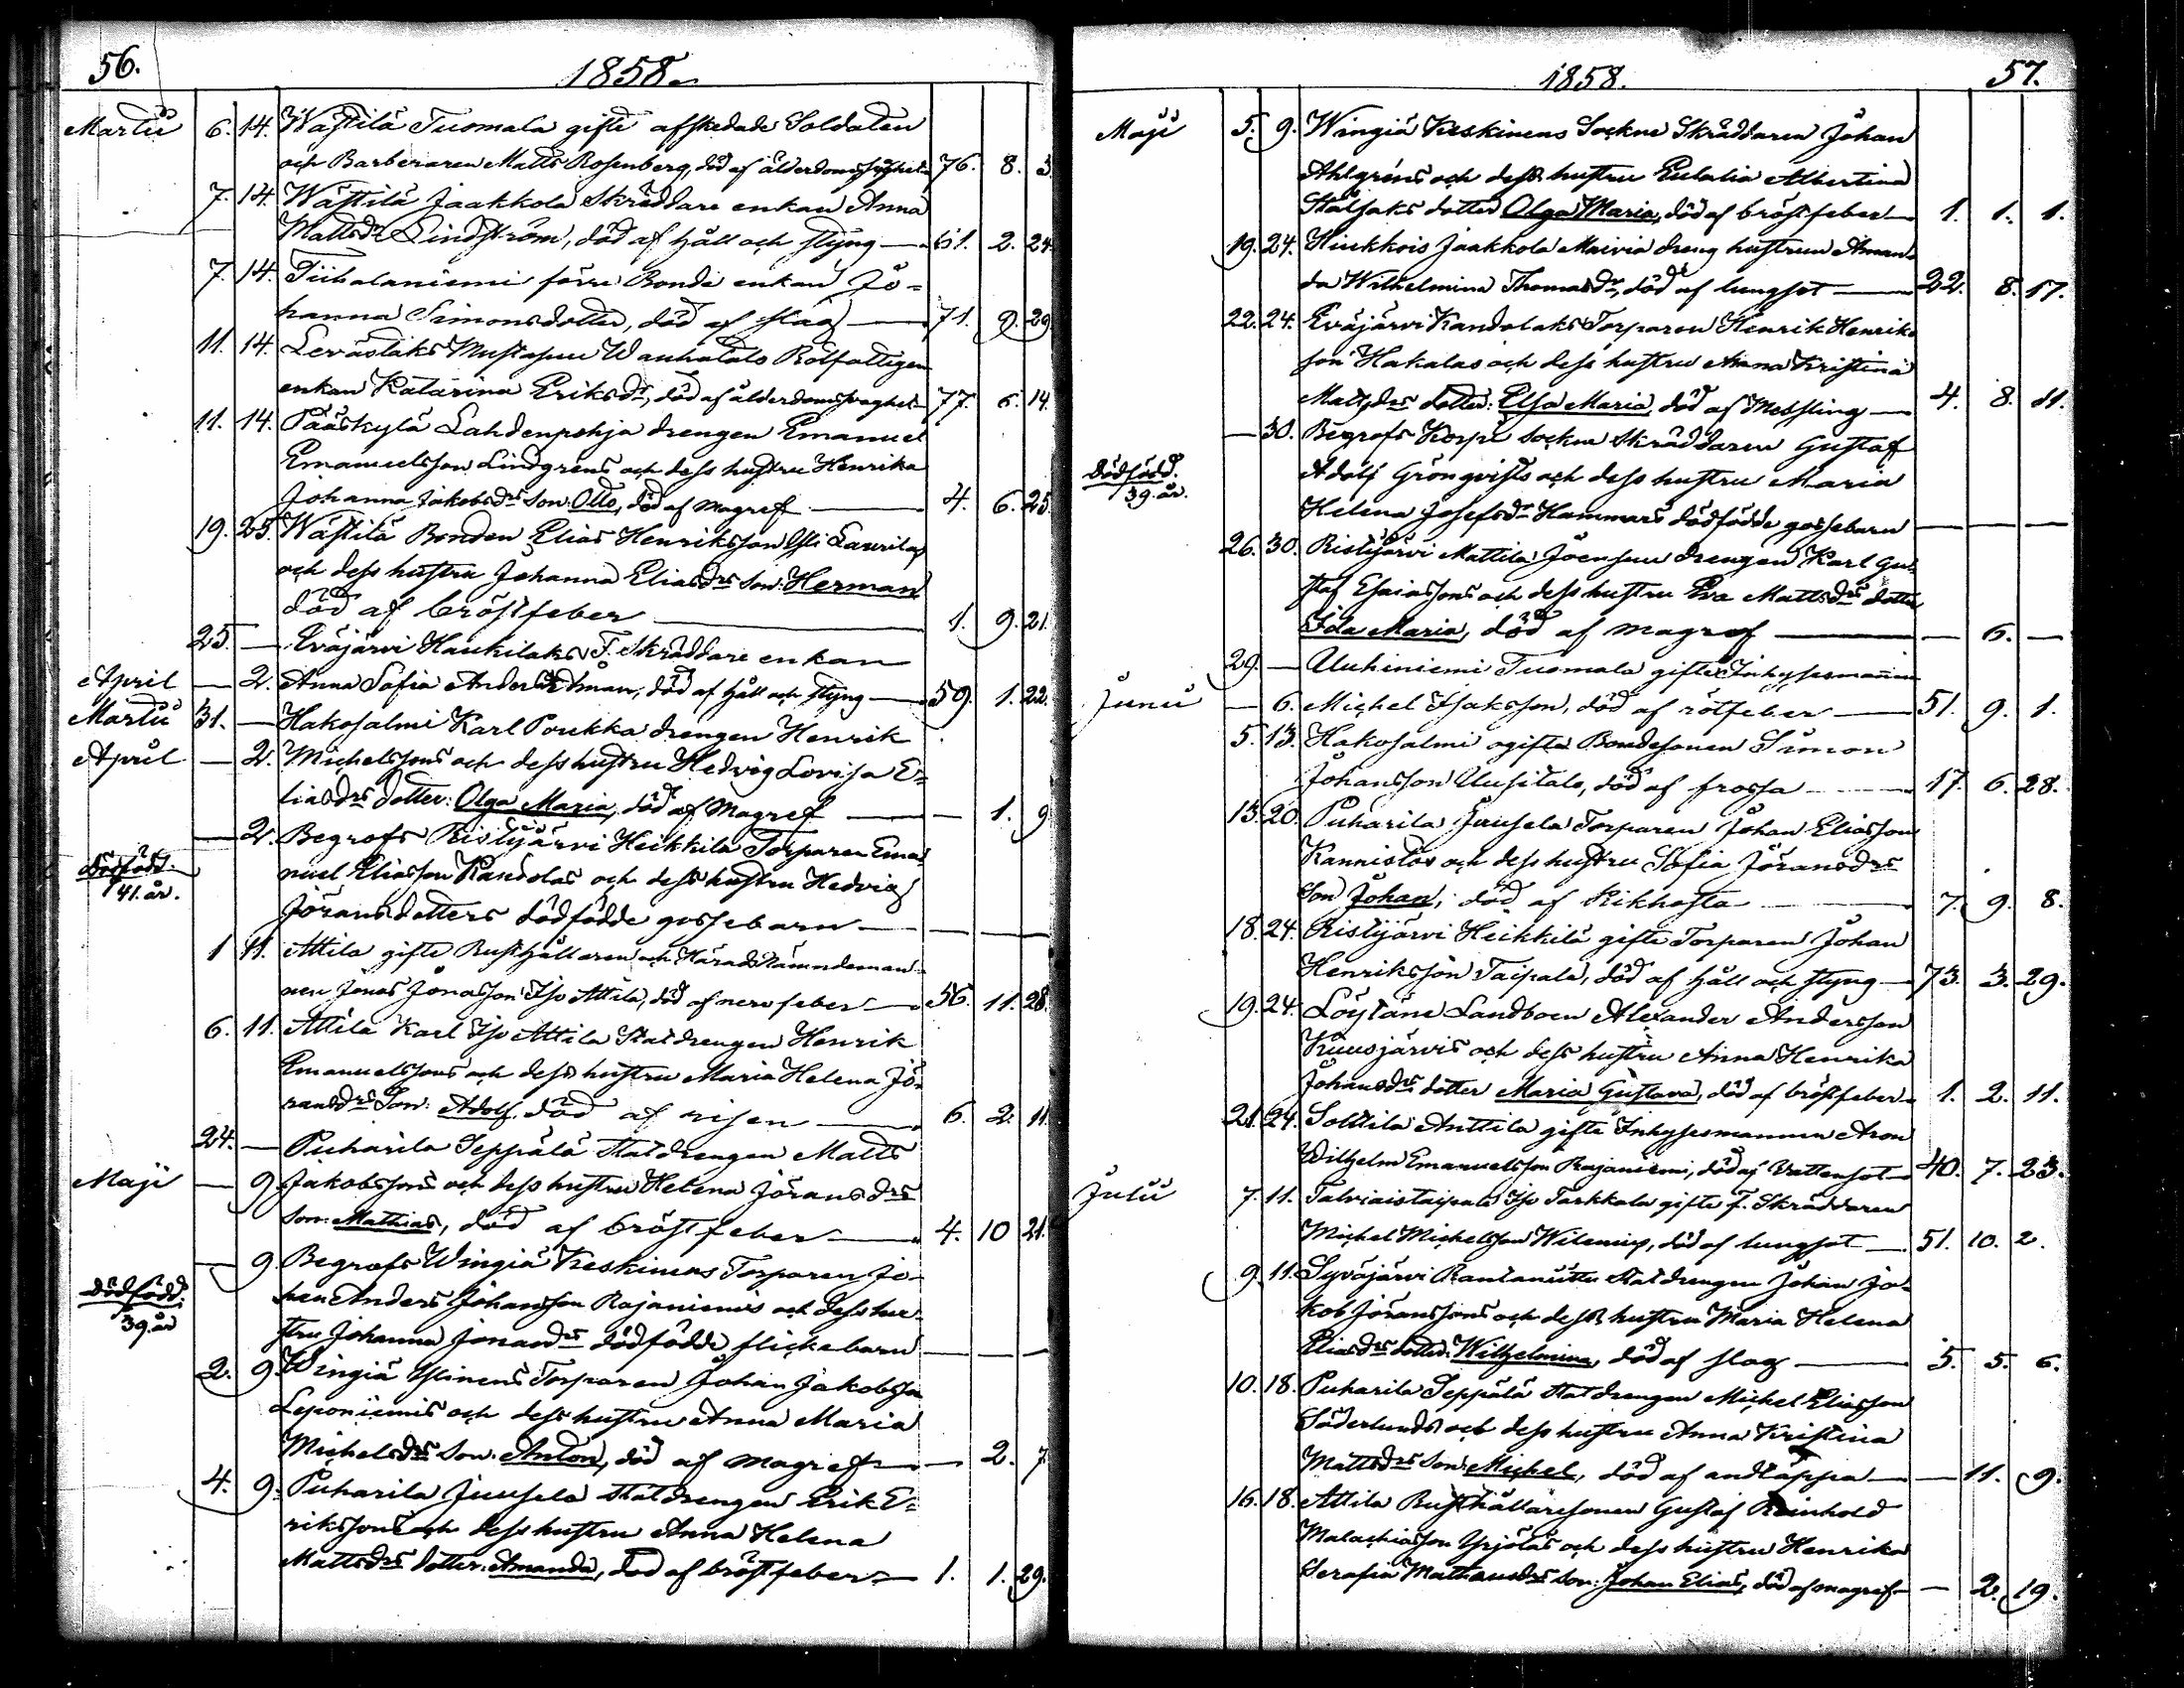 56.
1858.
Martii 6. 14. Wästilä Tuomala gifte afskedade Soldaten
och Barberaren Matts Rosenberg, död af ålderdomssvaghet 76. 8. 3.
7. 14. Wästilä Jaakkola Skräddare enkan Anna
Mattsdr Lindström, död af håll och styng 61. 2. 24.
7. 14. Tiihalaniemi förre Bonde enkan Jo=
hanna Simonsdotter, död af slag 71. 9. 29.
11. 14. Leväslaks Mustapuu Wanhatalo Rotfattigen
enkan Katarina Eriksdr, död af ålderdomssvaghet 77. 6. 14.
11. 14. Pääskylä Lahdenpohja drengen Emanuel
Emanuelsson Lindgrens och dess hustru Henrika
Johanna Jakobsdrs son: Otto, död af magref 4. 6. 25.
19. 25. Wästilä Bonden Elias Henriksson Laurilas
och dess hustru Johanna Eliasdrs son: Herman
död af bröstfeber 1. 9. 21.
25. — Eväjärvi Haukilaks F. Skräddare enkan
April — 2. Anna Sofia Andersdr Åman, död af håll och styng 59. 1. 22.
Martii 31. — Hakosalmi Karl Poukka drengen Henrik
April — 2. Michelssons och dess hustru Hedvig Lovisa E=
liasdrs dotter: Olga Maria, död af Magref — 1. 9
— 2. Begrofs Ristijärvi Heikkilä Torparen Ema=
Dödfödd. nuel Eliasson Kandolas och dess hustru Hedvig
41. år. Jöransdotters dödfödde gossebarn — — —
1 11. Attila gifte Rusthållaren och Häradsnämndeman=
nen Jonas Jonasson Iso Attila, död af nervfeber 56. 11. 28.
6. 11. Attila Karl Iso Attila Statdrengen Henrik
Emanuelssons och dess hustru Maria Helena Jö=
ransdrs Son: Adolf, död af risen 6. 2. 11.
24. — Puharila Seppälä Statdrengen Matts
Maji — 9. Jakobssons och dess hustru Helena Jöransdrs
son: Mathias, död af bröstfeber 4. 10 21.
— 9. Begrofs Wingiä Keskinens Torparen Jo=
Dödfödd. han Anders Johansson Rajaniemis och dess hu=
39. år stru Johanna Jonasdrs dödfödde flickebarn — — —
2. 9. Wingiä Ylinens Torparen Johan Jakobsson
Leponiemis och dess hustru Anna Maria
Michelsdrs Son: Anton, död af magref — 2. 7
4. 9. Puharila Juusela Statdrengen Erik E=
rikssons och dess hustru Anna Helena
Mattsdrs dotter: Amanda, död af bröstfeber 1. 1. 29.
1858.
57.
Maji 5. 9. Wingiä Keskinens Sockne Skräddaren Johan
Ahlgréns och dess hustru Eulalia Albertina
dotter Olga Maria, död af bröstfeber 1. 1. 1.
19. 24. Hiukkois Jaakkola Maivia dreng hustrun Aman=
da Wilhelmina Thomasdr, död af lungsot 22. 8. 17.
22. 24. Eväjärvi Kandolaks Torparen Henrik Henriks
son Hakalas och dess hustru Anna Kristina
Mattsdrs dotter: Elsa Maria, död af Messling 4. 8. 11.
— 30. Begrofs Korpi Sockne Skräddaren Gustaf
Dödfödd. Adolf Grönqvists och dess hustru Maria
39. år. Helena Josefsdr Hammars dödfödde gossebarn — — —
26. 30. Ristijärvi Mattila Joensuu drengen Karl Gu=
staf Esaiassons och dess hustru Eva Mattsdrs dotter
Ida Maria, död af magref — 6. —
29. — Uuhiniemi Tuomala gifte Inhysesmannen
Junii — 6. Michel Isaksson, död af rötfeber 51. 9. 1.
5. 13. Hakosalmi ogifte Bondesonen Simon
Johansson Uusitalo, död af frossa 17. 6. 28.
13. 20. Puharila Juusela Torparen Johan Eliasson
Kannistos och dess hustru Sofia Jöransdrs
Son Johan, död af Kikhosta 7. 9. 8.
18. 24. Ristijärvi Heikkilä gifte Torparen Johan
Henriksson Taipale, död af håll och styng 73. 3. 29.
19. 24. Löytäne Landboen Alexander Andersson
Kuusjärvis och dess hustru Anna Henrika
Johansdrs dotter Maria Gustava, död af bröstfeber 1. 2. 11.
21. 24. Solttila Anttila gifte Inhysesmannen Aron
Wilhelm Emanuelsson Rajaniemi, död af Vattensot 40. 7. 23.
Julii 7. 11. Talviaistaipale Iso Tarkkala gifte F. Skräddaren
Michel Michelsson Wilenius, död af lungsot 51. 10. 2.
9. 11. Syväjärvi Rantanuttu Statdrengen Johan Ja=
kob Jöranssons och dess hustru Maria Helena
Eliasdrs dotter: Wilhelmina, död af slag 5. 5. 6.
10. 18. Puharila Seppälä Statdrengen Michel Eliasson
Söderlunds och dess hustru Anna Kristina
Mattsdrs Son: Michel, död af andtäppa — 11. 9.
16. 18. Attila Rusthållaresonen Gustaf Reinhold
Malachiasson Yrjölas och dess hustru Henrika
Serafia Mathiasdrs son: Johan Elias, död af magref — 2. 19.